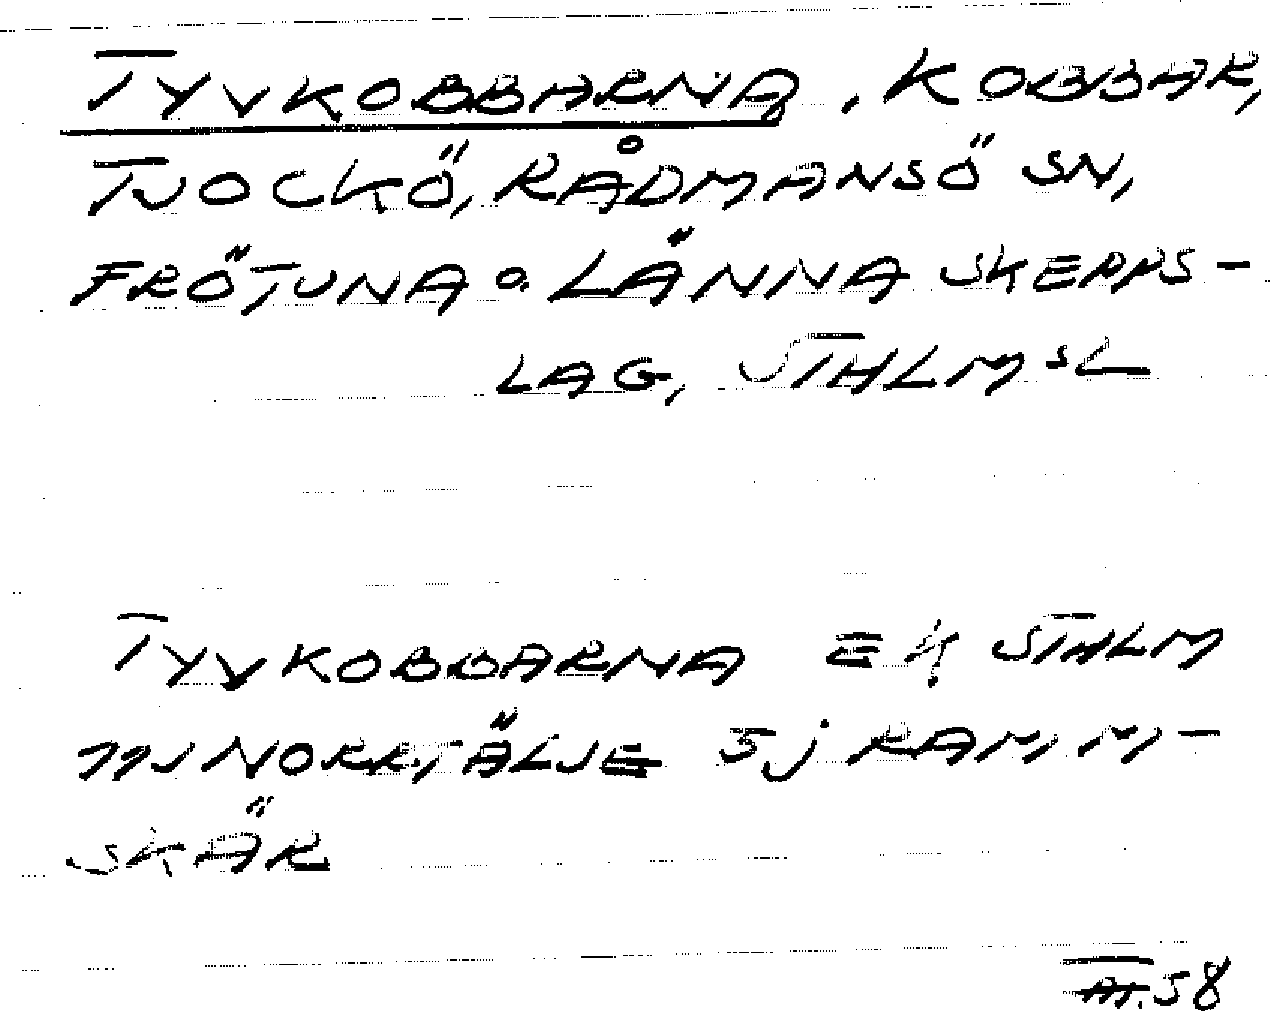 TYVKOBBARNA, KOBBAR,
TJOCKÖ, RÅDMANSÖ SN,
FRÖTUNA o. LÄNNA SKEPPS-
LAG, STHLMSL
TYVKOBBARNA EK STHLM
117 NORRTÄLJE 5j RAMM-
SKÄR
58